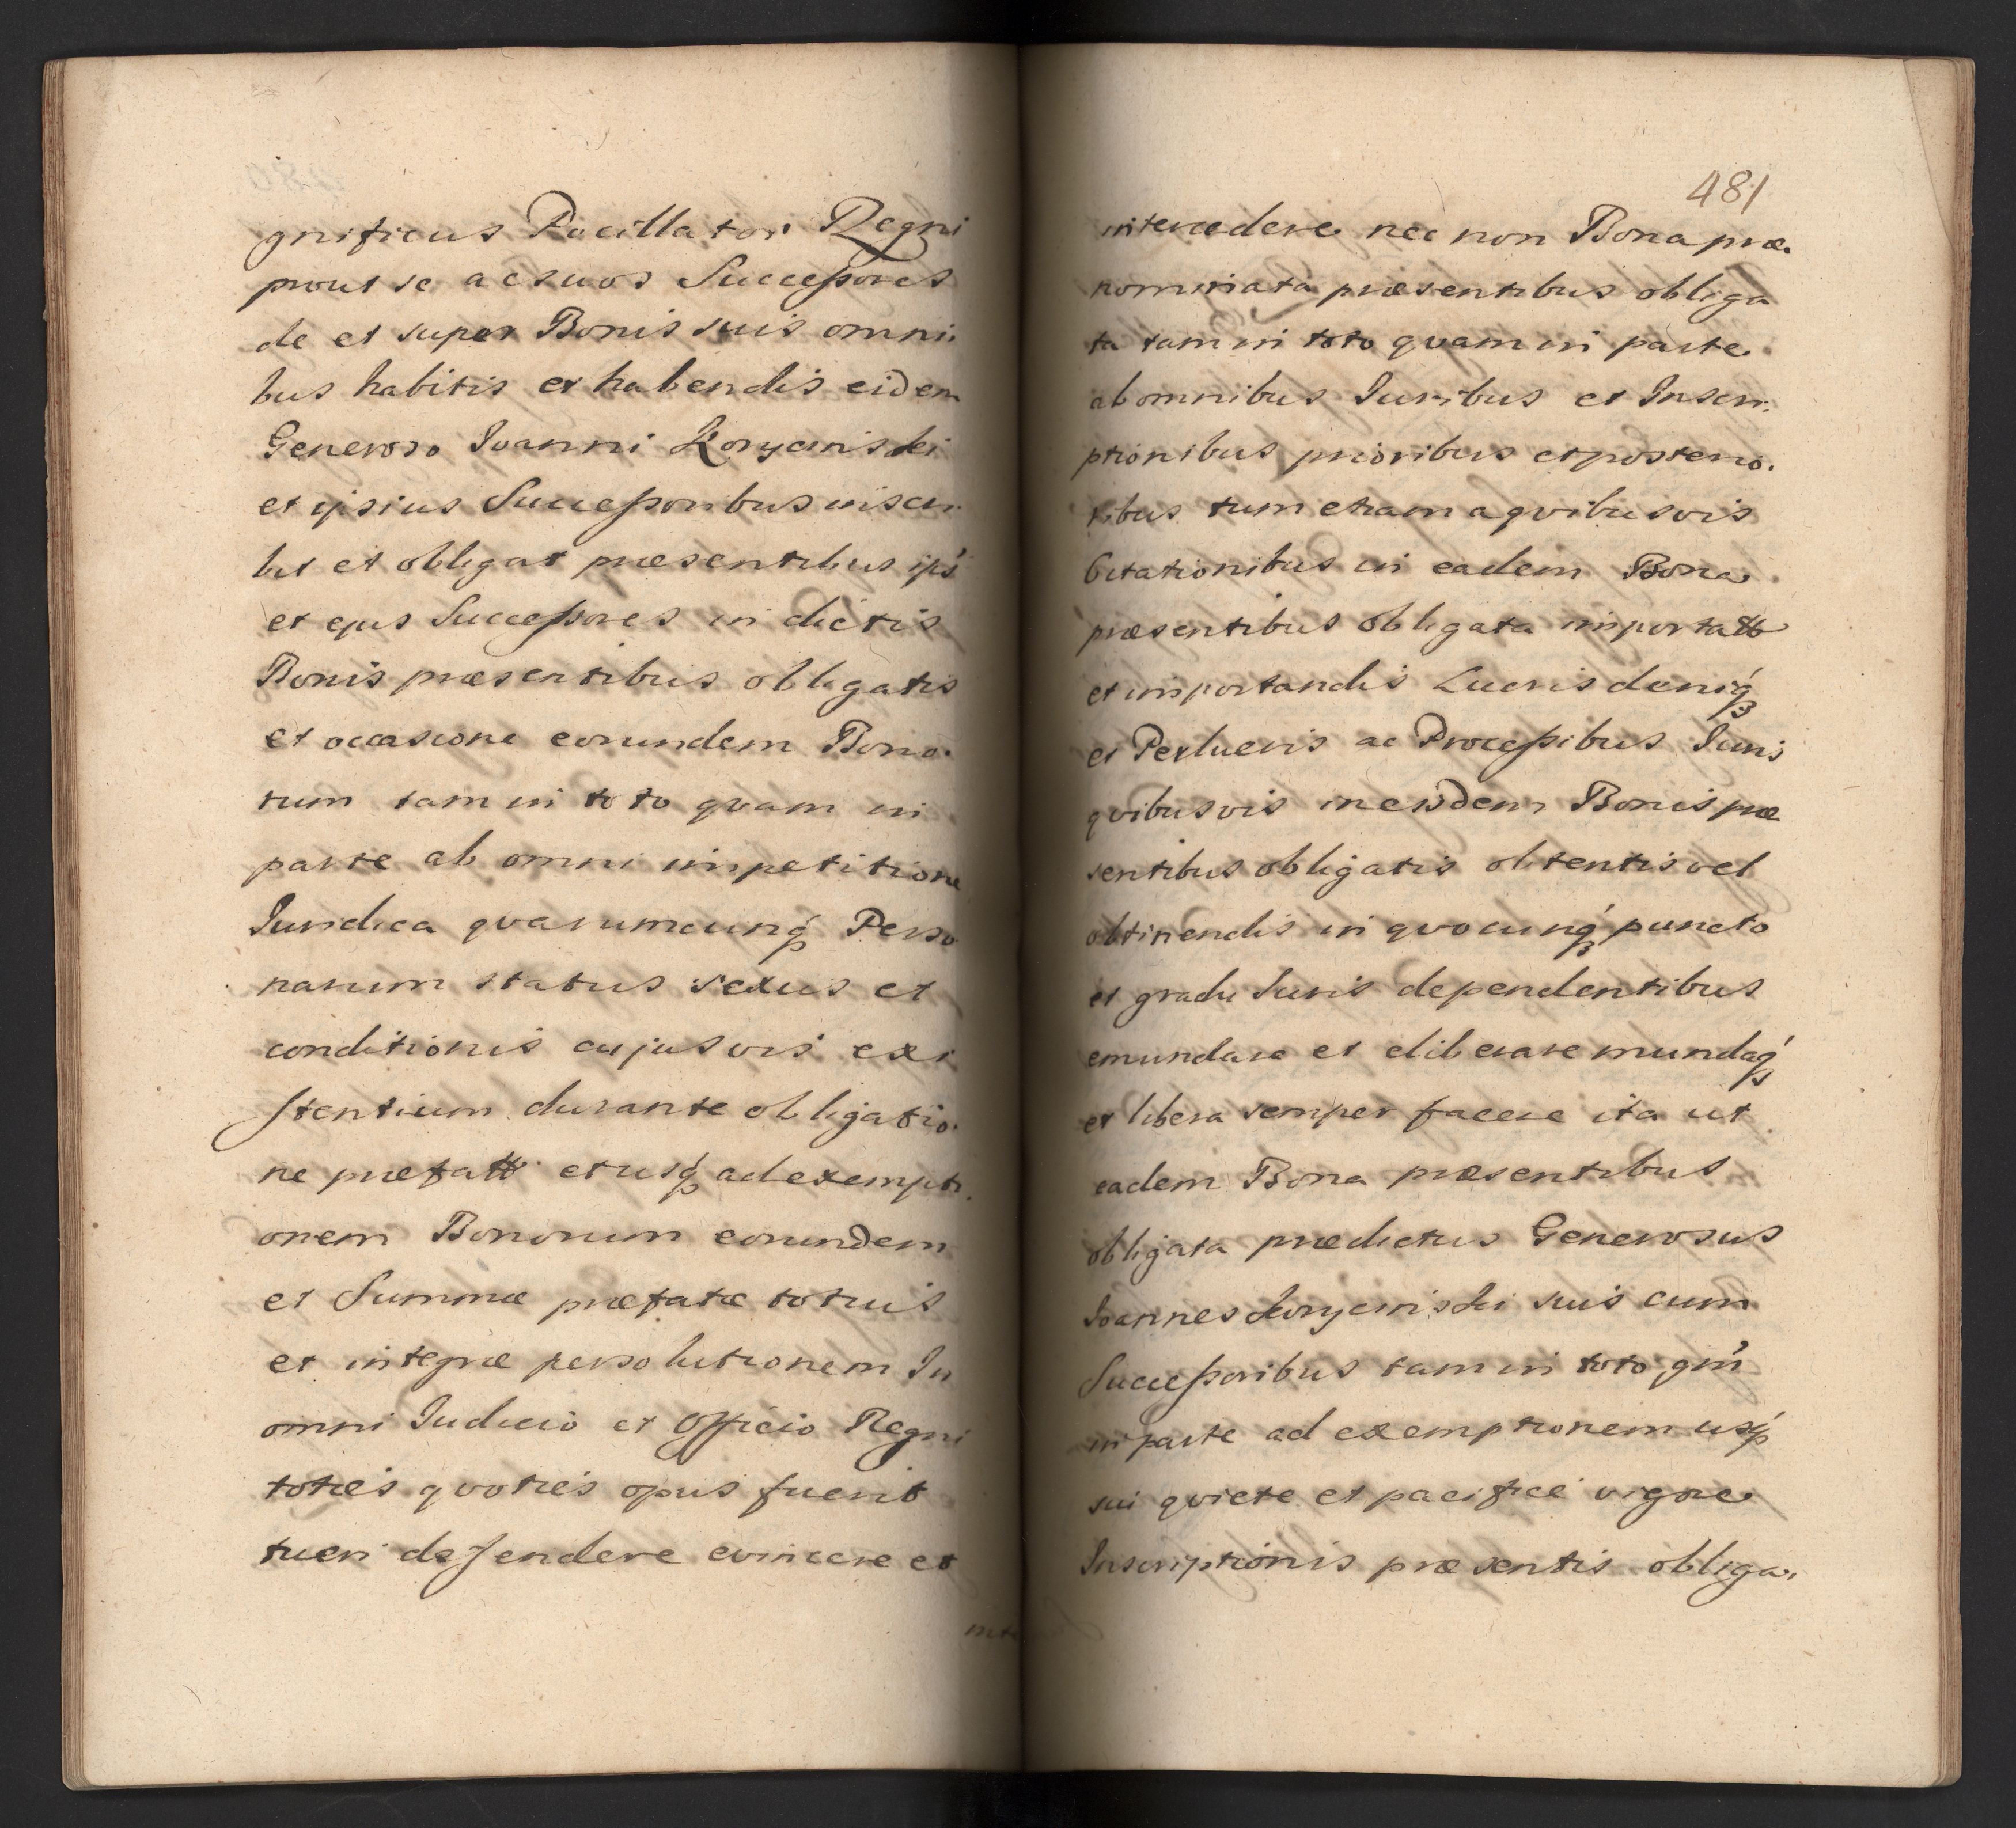 gnificus Pocillator Regni
prout se ac suos Successores
de et super Bonis suis omni.
bus habitis et habendis eidem
Generoso Ioanni Koryciński
et ipsius Successoribus inscri
bit et obligat præsentibus ips̃
et ejus Successores in dictis
Bonis præsentibus obligatis
et occasione eorundem Bono.
rum tam in toto qvam in
parte ab omni impetitione
Iuridica qvarumcunq́ Perso
narum status sexus et
conditionis cujusvis exi
stentium durante obligatio.
ne præfatt et usq́ ad exempti.
onem Bonorum eorundem
et Summæ præfatæ totius
et integræ persolutionem In
omni Iudicio et Officio Regni
toties qvoties opus fuerit
tueri defendere evincere et
481
intercedere nec non Bona præ.
nominata præsentibus obliga
ta tam in toto qvam in parte.
ab omnibus Iuribus et Inscri.
ptionibus prioribus et posterio.
ribus tum etiam a qvibusvis
Citationibus in eadem Bona
præsentibus obligata importatt
et importandis Lucris deniq́
et Perlucris ac Processibus Iuris
qvibusvis in eisdem Bonis præ
sentibus obligatis obtentis vel
obtinendis in qvocunq́ puncto
et gradu Iuris dependentibus
emundare et eliberare mundaq́
et libera semper facere ita ut
eadem Bona præsentibus
obligata prædictus Generosus
Ioannes Koryciński suis cum
Successoribus tam in toto qm̃
in parte ad exemptionem usq́
sui qviete et pacifice vigore
Inscriptionis præsentis obliga.